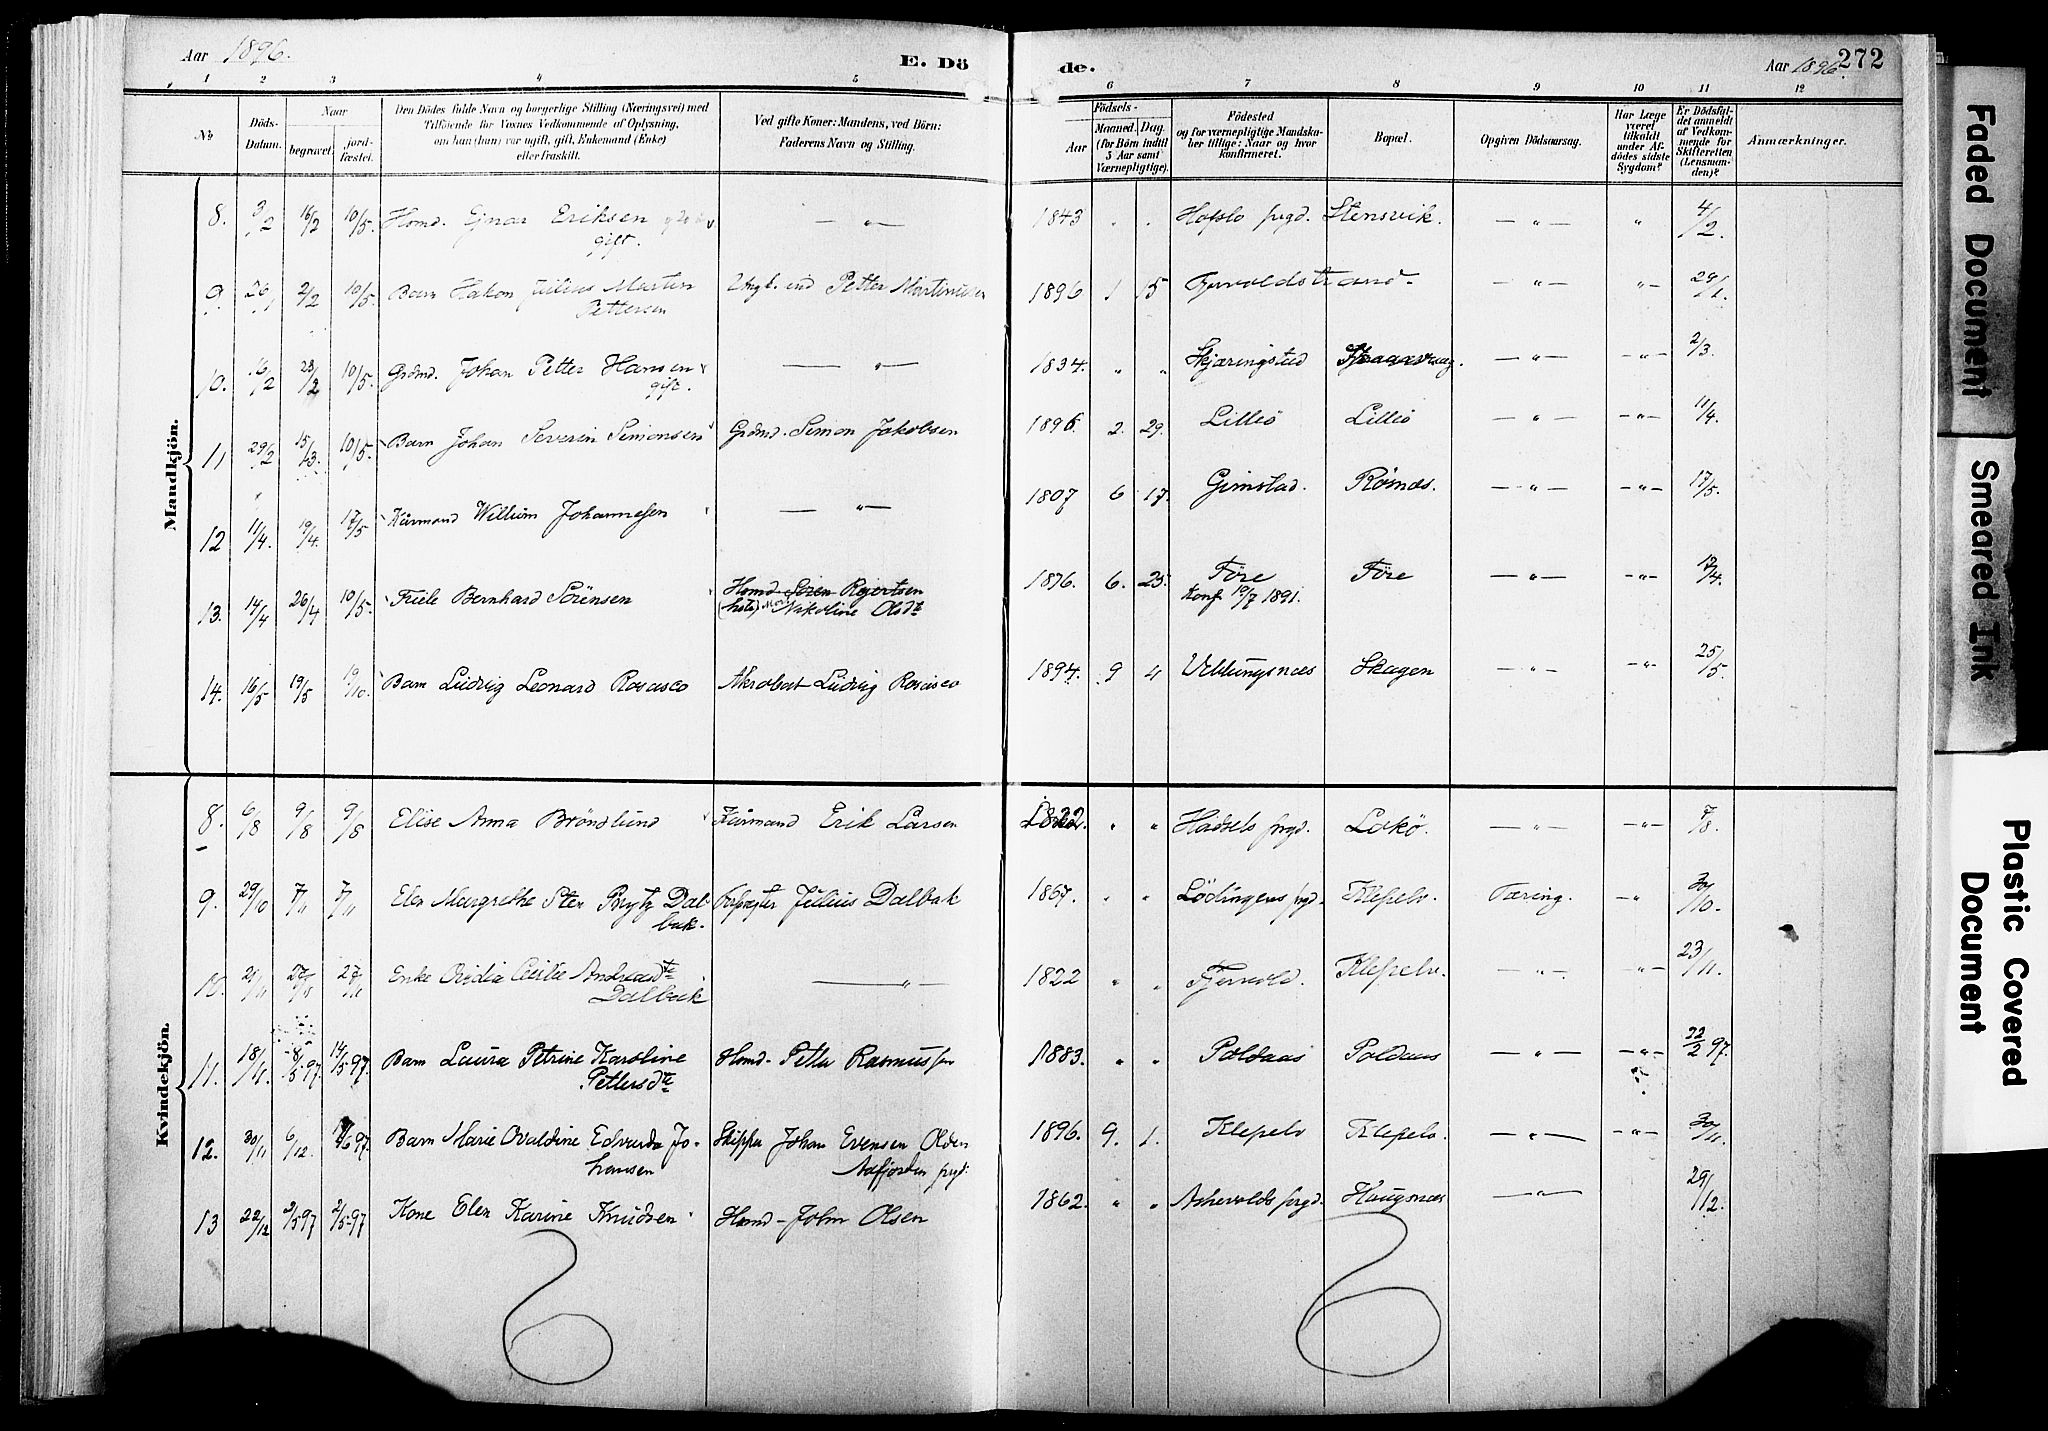 Aar 1896.
E. Dö
de.
Aar 1896.
272
1 2 3 4 5 6 7 8 9 10 11 12
No
Döds-
Datum.
Naar
begravet.
jord-
fæstet.
Den Dödes fulde Navn og borgerlige Stilling (Næringsvei) med
Tilföiende for Voxnes Vedkommende af Oplysning,
om han (hun) var ugift, gift, Enkemand (Enke)
eller fraskilt.
Ved gifte Koner: Mandens, ved Börn:
Faderens Navn og Stilling.
Födsels-
Aar
Maaned. Dag.
(for Börn indtil
5 Aar samt
Værnepligtige).
Födested
og for værnepligtige Mandska-
ber tillige: Naar og hvor
konfirmeret.
Bopæl.
Opgiven Dödsaarsag.
Har Læge
været
tilkaldt
under Af-
dödes sidste
Sygdom?
Er Dödsfal-
det anmeldt
af Vedkom-
mende for
Skifteretten
(Lensman-
den)?
Anmærkninger.
Mandkjön.
8. 3/2 16/2 10/5. Hsmd. Ejnar Eriksen — " — 1843 " " Hafslo prgd. Stensvik. — " — " 4/2.
gift.
9. 26/1 2/2 10/5. Barn Hakon Julius Martin Ungk. Petter Martinusen 1896 1 15 Tjervoldstrand — " — " 29/1.
Pettersen
10. 16/2 23/2 10/5. Grdmd. Johan Petter Hansen — " — 1834. " " Skjæringstad — " — — " — 2/3.
gift.
11 29/2 15/3. 10/5. Barn Johan Severin Simonsen Grdmd. Simon Jakobsen 1896. 2. 29. Lilleö Lilleö — " — — " — 11/4.
12 11/4. 19/4. 17/5 Kårmand Willum Johannesen — " — 1807 6 17. Gimstad. Rösnæs. — " — — " — 17/5.
13. 14/4 26/4 10/5. Friele Bernhard Sörensen Hsmd Sören Rejertsen 1876. 6. 25. Före Före — " — — " — 17/4.
Nikoline Olsdt Konf 19/7 1891.
14. 16/5 19/5 19/10. Barn Ludvig Leonard Rosisco Akrobat Ludvig Rosisco 1894. 9 4 Veblungsnæs Skagen — " — — " — 25/5.
Kvindekjön.
8. 6/8 9/8 9/8 Elise Anna Bröndlund Kårmand Erik Larsen 1822. " " Hadsels prgd. Lokö. — " — — " — 7/8.
9. 29/10 7/11 7/11 Elen Margrethe Sten Brytz Dal- Forpagter Julius Dalbak 1867. " " Lödingens prgd. Klepelv. Tæring. — " 30/10.
bak.
10. 21/11 27/11 27/11 Enke Ovidia Cecilie Andreasdt — " — 1822 " " Tjervold. Klepelv. — " — — " — 23/11.
Dalbak
11. 18/11. 8/5 97. 14/5 97. Barn Laura Petrine Karoline Hsmd. Petter Rasmussen 1883. " " Poldaas Poldaas — " — — " — 22/2 97.
Pettersdt
12. 30/11 6/12. Barn Marie Ovaldine Edvarda Jo- Skipper Johan Evensen Olden 1896. 9. 1. Klepelv Klepelv. — " — — " — 30/11.
hansen Aafjorden prgd.
13 22/12 2/5 97 2/5 97 Kone Elen Karine Knudsen Hsmd. John Olsen 1862. " " Askevolds prgd. Haugsnæs — " — 29/12.
6 6
Faded Document
Smeared Ink
Plastic Covered
Document